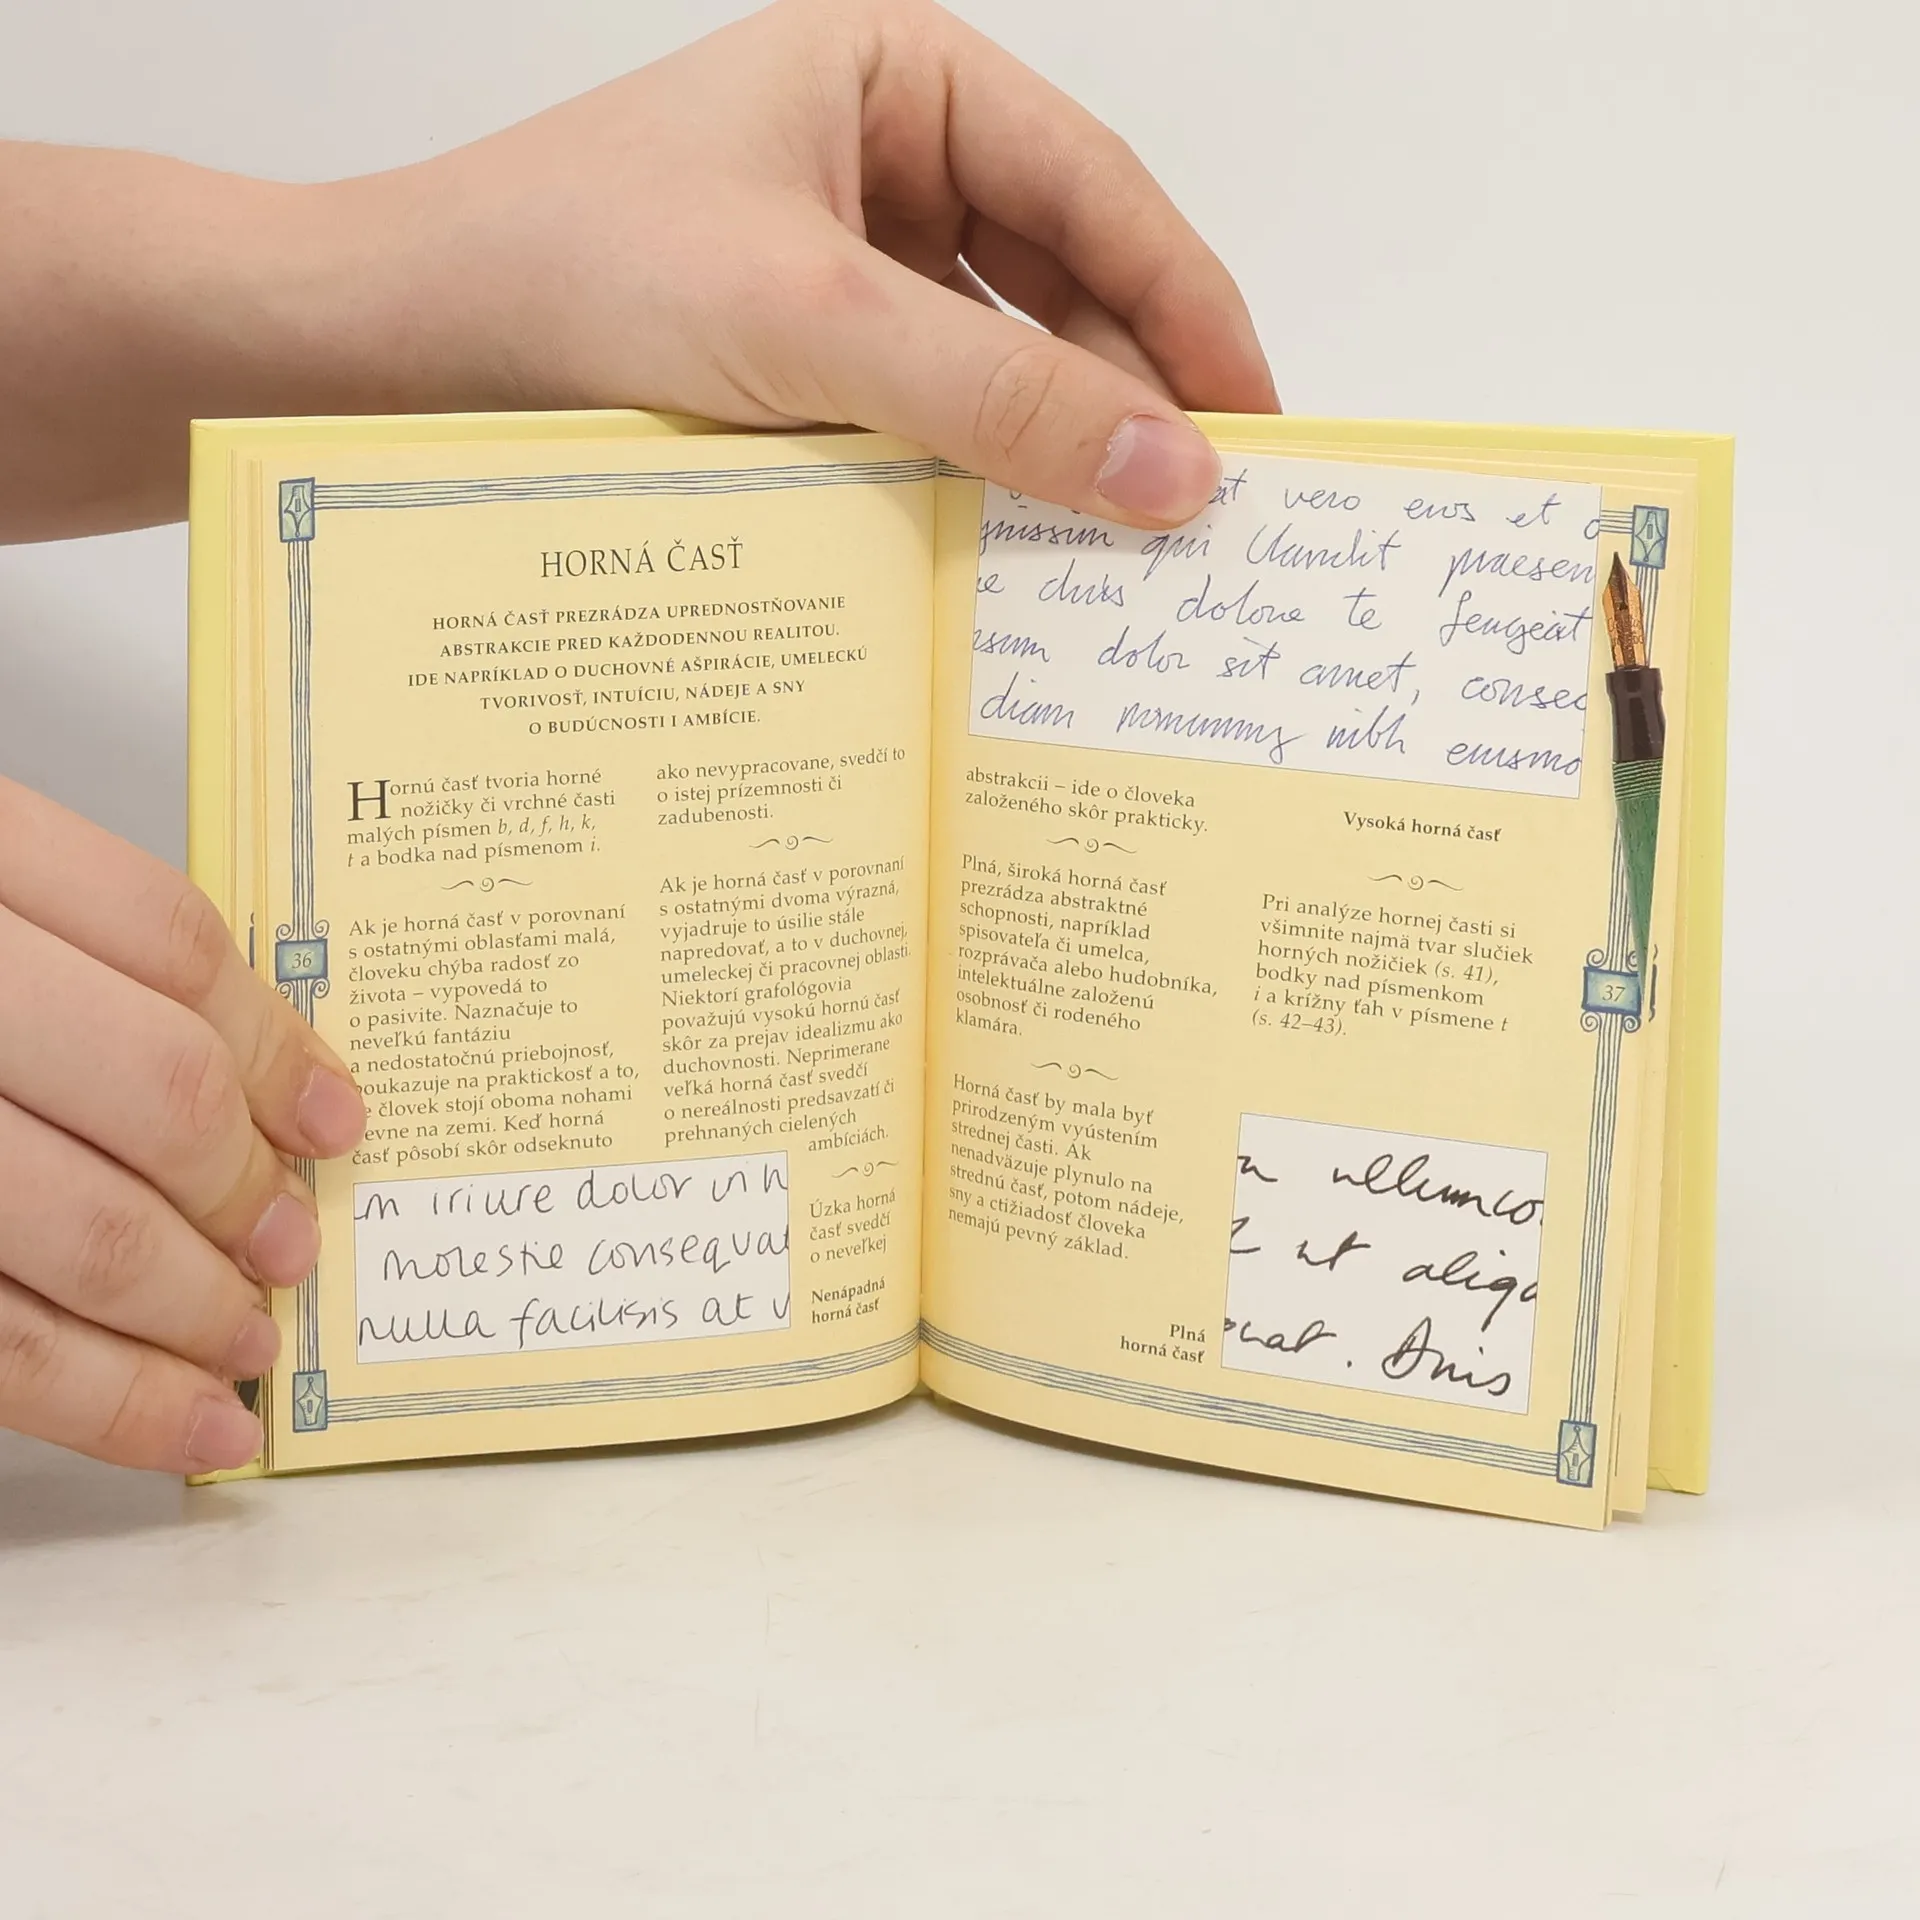 HORNÁ ČASŤ
HORNÁ ČASŤ PREZRÁDZA UPREDNOSTŇOVANIE
ABSTRAKCIE PRED KAŽDODENNOU REALITOU.
IDE NAPRÍKLAD O DUCHOVNÉ AŠPIRÁCIE, UMELECKÚ
TVORIVOSŤ, INTUÍCIU, NÁDEJE A SNY
O BUDÚCNOSTI I AMBÍCIE.
Hornú časť tvoria horné
nožičky či vrchné časti
malých písmen b, d, f, h, k,
t a bodka nad písmenom i.
Ak je horná časť v porovnaní
s ostatnými oblasťami malá,
človeku chýba radosť zo
života – vypovedá to
o pasivite. Naznačuje to
neveľkú fantáziu
a nedostatočnú priebojnosť,
poukazuje na praktickosť a to,
človek stojí oboma nohami
evne na zemi. Keď horná
časť pôsobí skôr odseknuto
ako nevypracovane, svedčí to
o istej prízemnosti či
zadubenosti.
Ak je horná časť v porovnaní
s ostatnými dvoma výrazná,
vyjadruje to úsilie stále
napredovať, a to v duchovnej,
umeleckej či pracovnej oblasti.
Niektorí grafológovia
považujú vysokú hornú časť
skôr za prejav idealizmu ako
duchovnosti. Neprimerane
veľká horná časť svedčí
o nereálnosti predsavzatí či
prehnaných cielených
ambíciách.
Úzka horná
časť svedčí
o neveľkej
Nenápadná
horná časť
m iriure dolor in h
molestie consequat
nulla facilisis at v
36
at vero eros et o
gnissim qui blandit praesen
e duis dolore te feugait
psum dolor sit amet, consec
diam nonummy nibh euismo
abstrakcii – ide o človeka
založeného skôr prakticky.
Plná, široká horná časť
prezrádza abstraktné
schopnosti, napríklad
spisovateľa či umelca,
rozprávača alebo hudobníka,
intelektuálne založenú
osobnosť či rodeného
klamára.
Horná časť by mala byť
prirodzeným vyústením
strednej časti. Ak
nenadväzuje plynulo na
strednú časť, potom nádeje,
sny a ctižiadosť človeka
nemajú pevný základ.
Plná
horná časť
Vysoká horná časť
Pri analýze hornej časti si
všimnite najmä tvar slučiek
horných nožičiek (s. 41),
bodky nad písmenkom
i a krížny ťah v písmene t
(s. 42–43).
ullamco
ut aliqu
quat. Duis
37